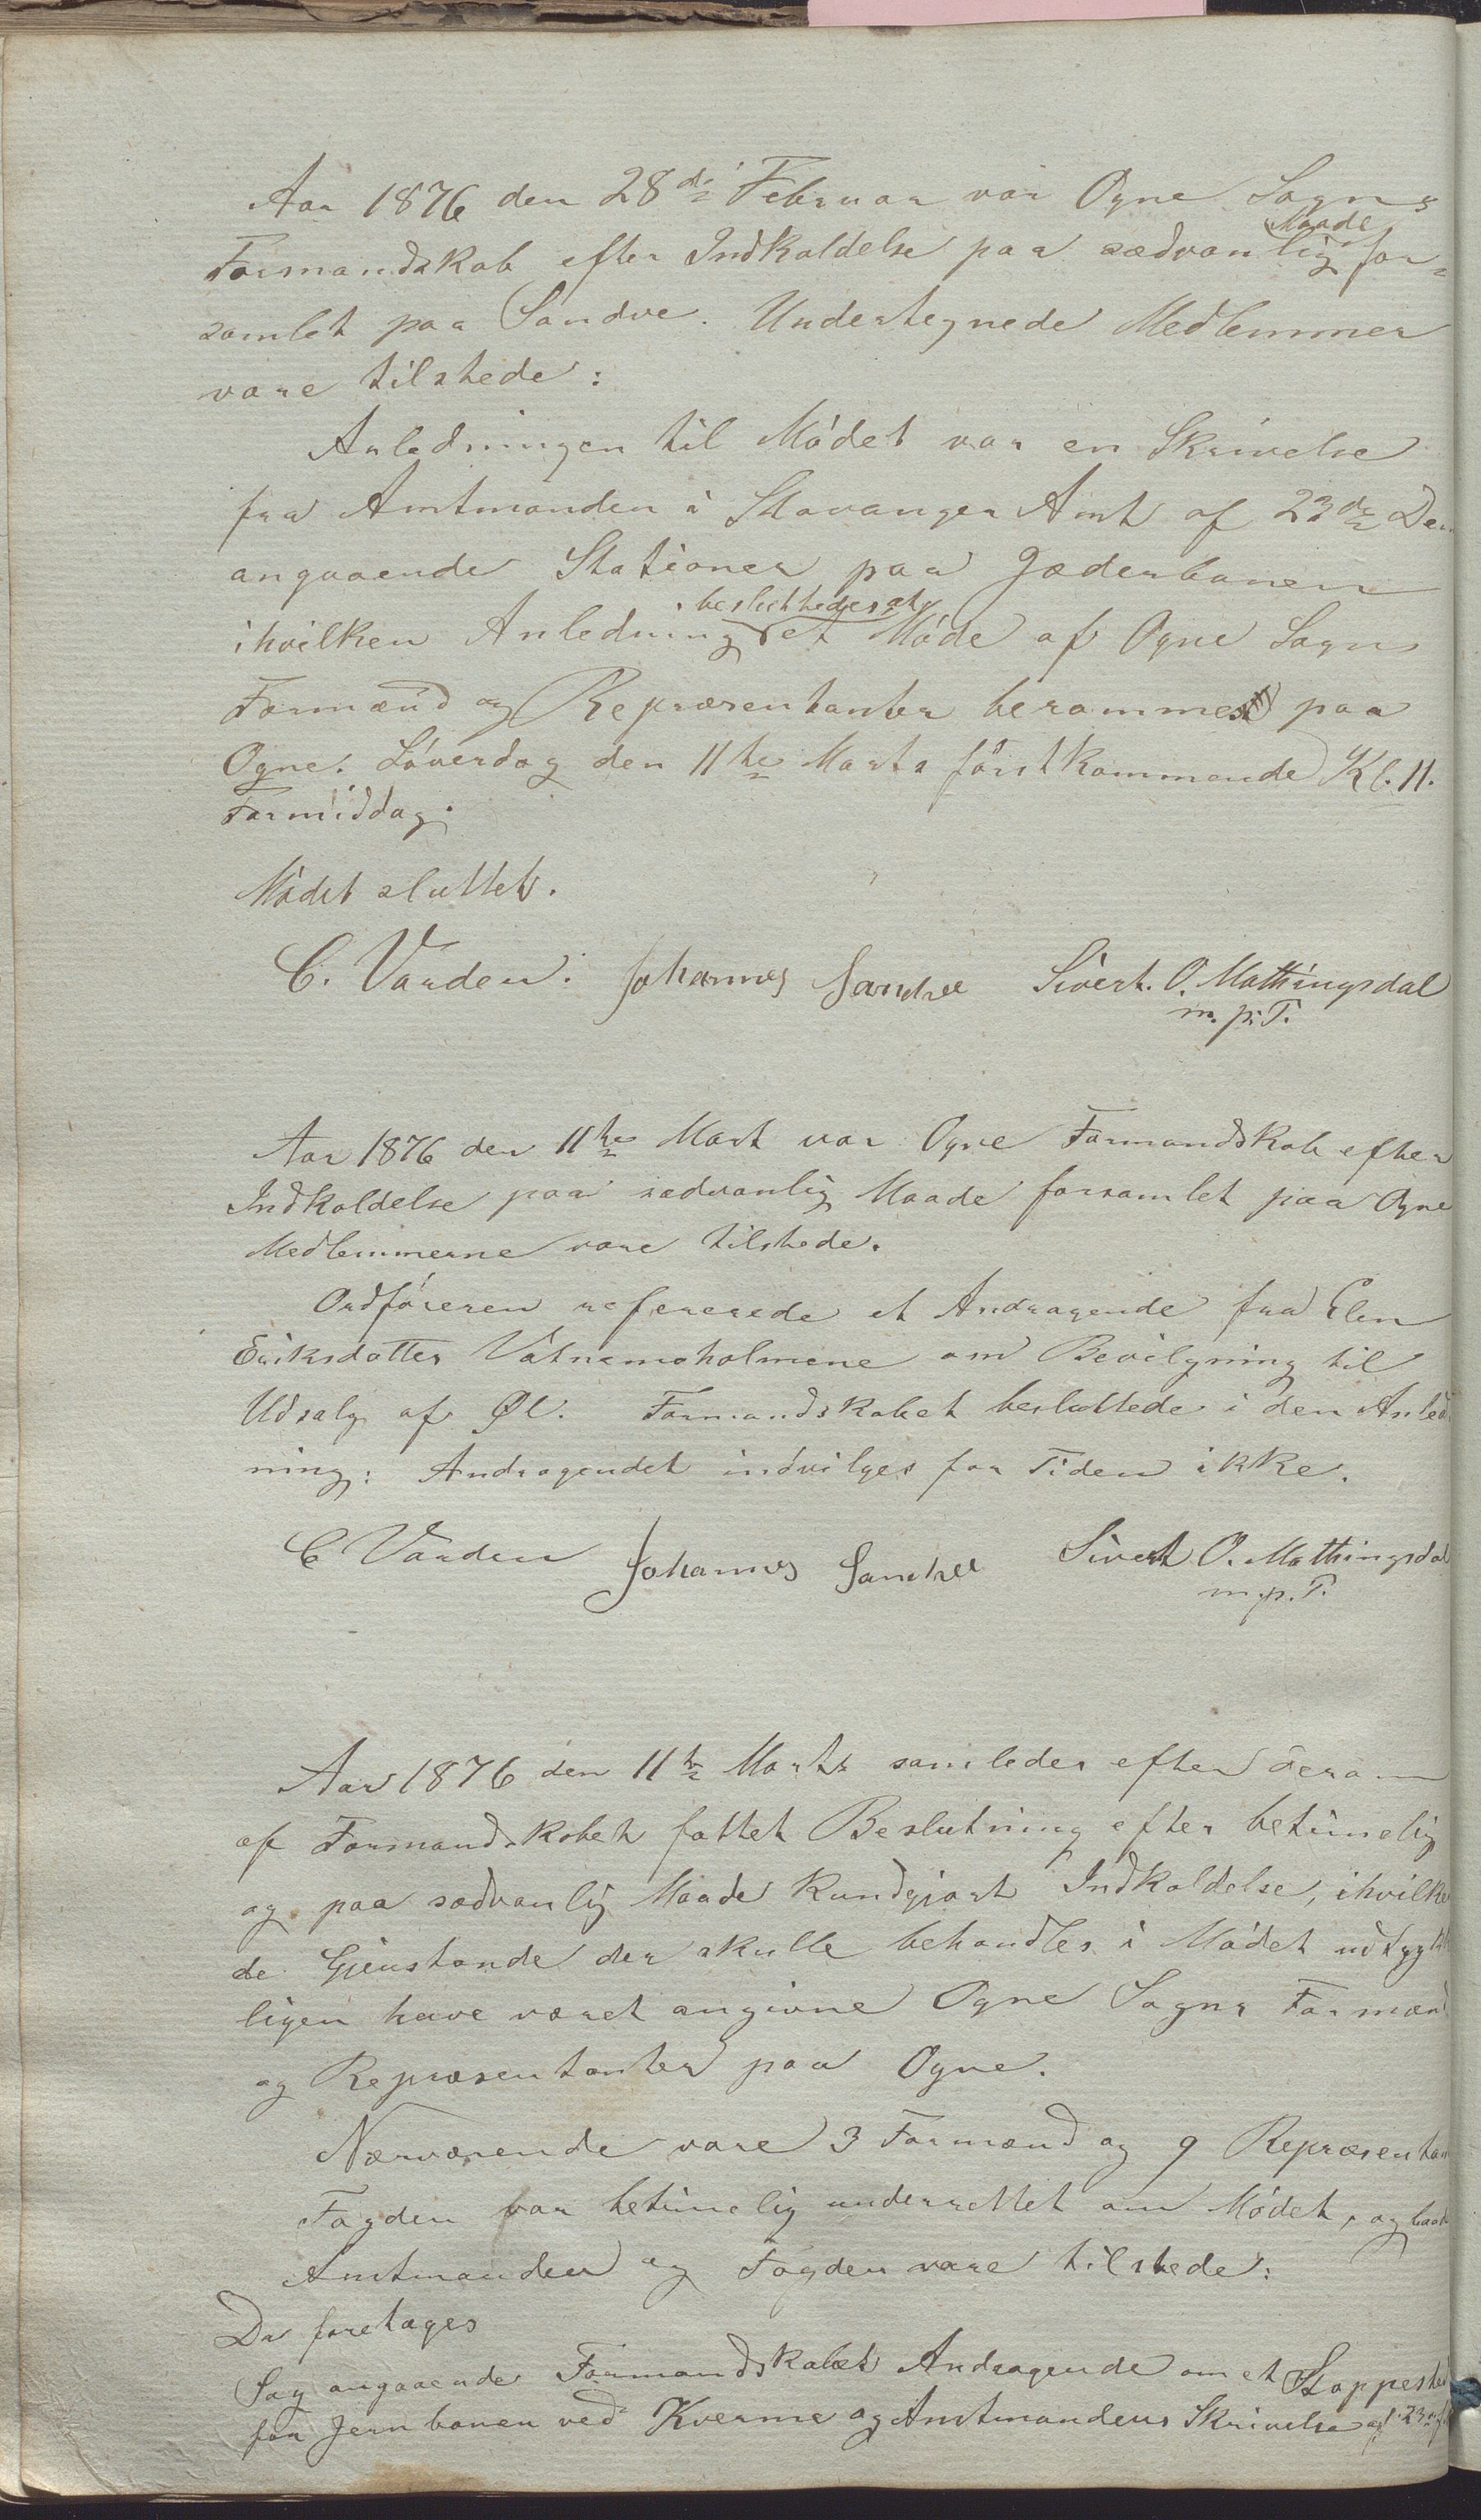 Aar 1876 den 28de Februar var Ogne Sogns
Formandskab efter Indkaldelse paa sædvanlig Maade for-
samlet paa Sandve. Undertegnede Medlemmer
vare tilstede:
Anledningen til Mödet var en Skrivelse
fra Amtmanden i Stavanger Amt af 23de Ds.
angaaende Stationer paa Jæderbanen
ihvilken Anledning besluttedes at et Möde af Ogne Sogns
Formænd og Repræsentanter berammes paa
Ogne. Löverdag den 11te Marts förstkommende Kl. 11.
Formiddag.
Mödet sluttet.
C. Varden. Johannes Sandve Sivert. O. Mattingsdal
m. p. P.
Aar 1876 den 11te Mart var Ogne Formandskab efter
Indkaldelse paa sædvanlig Maade forsamlet paa Ogne
Medlemmerne vare tilstede.
Ordföreren refererede et Andragende fra Elen
Eriksdatter Vatnemoholmene om Bevilgning til
Udsalg af Øl. Formandskabet besluttede i den Anled
ning: Andragendet indvilges for Tiden ikke.
C Varden Johannes Sandve Sivert O. Mattingsdal
m. p. P.
Aar 1876 den 11te Marts samledes efter derom
af Formandskabet fattet Beslutning efter betimelig
og paa sædvanlig Maade Kundgjort Indkaldelse, ihvilke
de Gjenstande der skulle behandles i Mödet udtrykke
ligen have været angivne Ogne Sogns Formænd
og Repræsentanter paa Ogne.
Nærværende vare 3 Formænd og 9 Repræsentan
Fogden var betimelig underrettet om Mödet, og baade
Amtmanden og Fogden vare tilstede:
Da foretages
Sag angaaende Formandskabets Andragende om et Stoppested
for Jernbanen ved Kverme og Amtmandens Skrivelse af 23